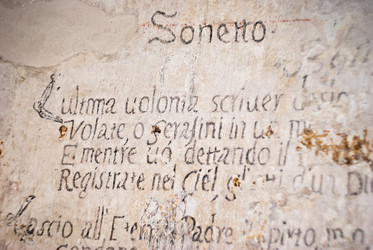 Sonetto
L'ultima uolontà scriuer
Volate, o Serafini in un
E mentre uò dettando il
Registrate nel ciel gli d'un Dio
Lascio all'Eterno Padre Spirito